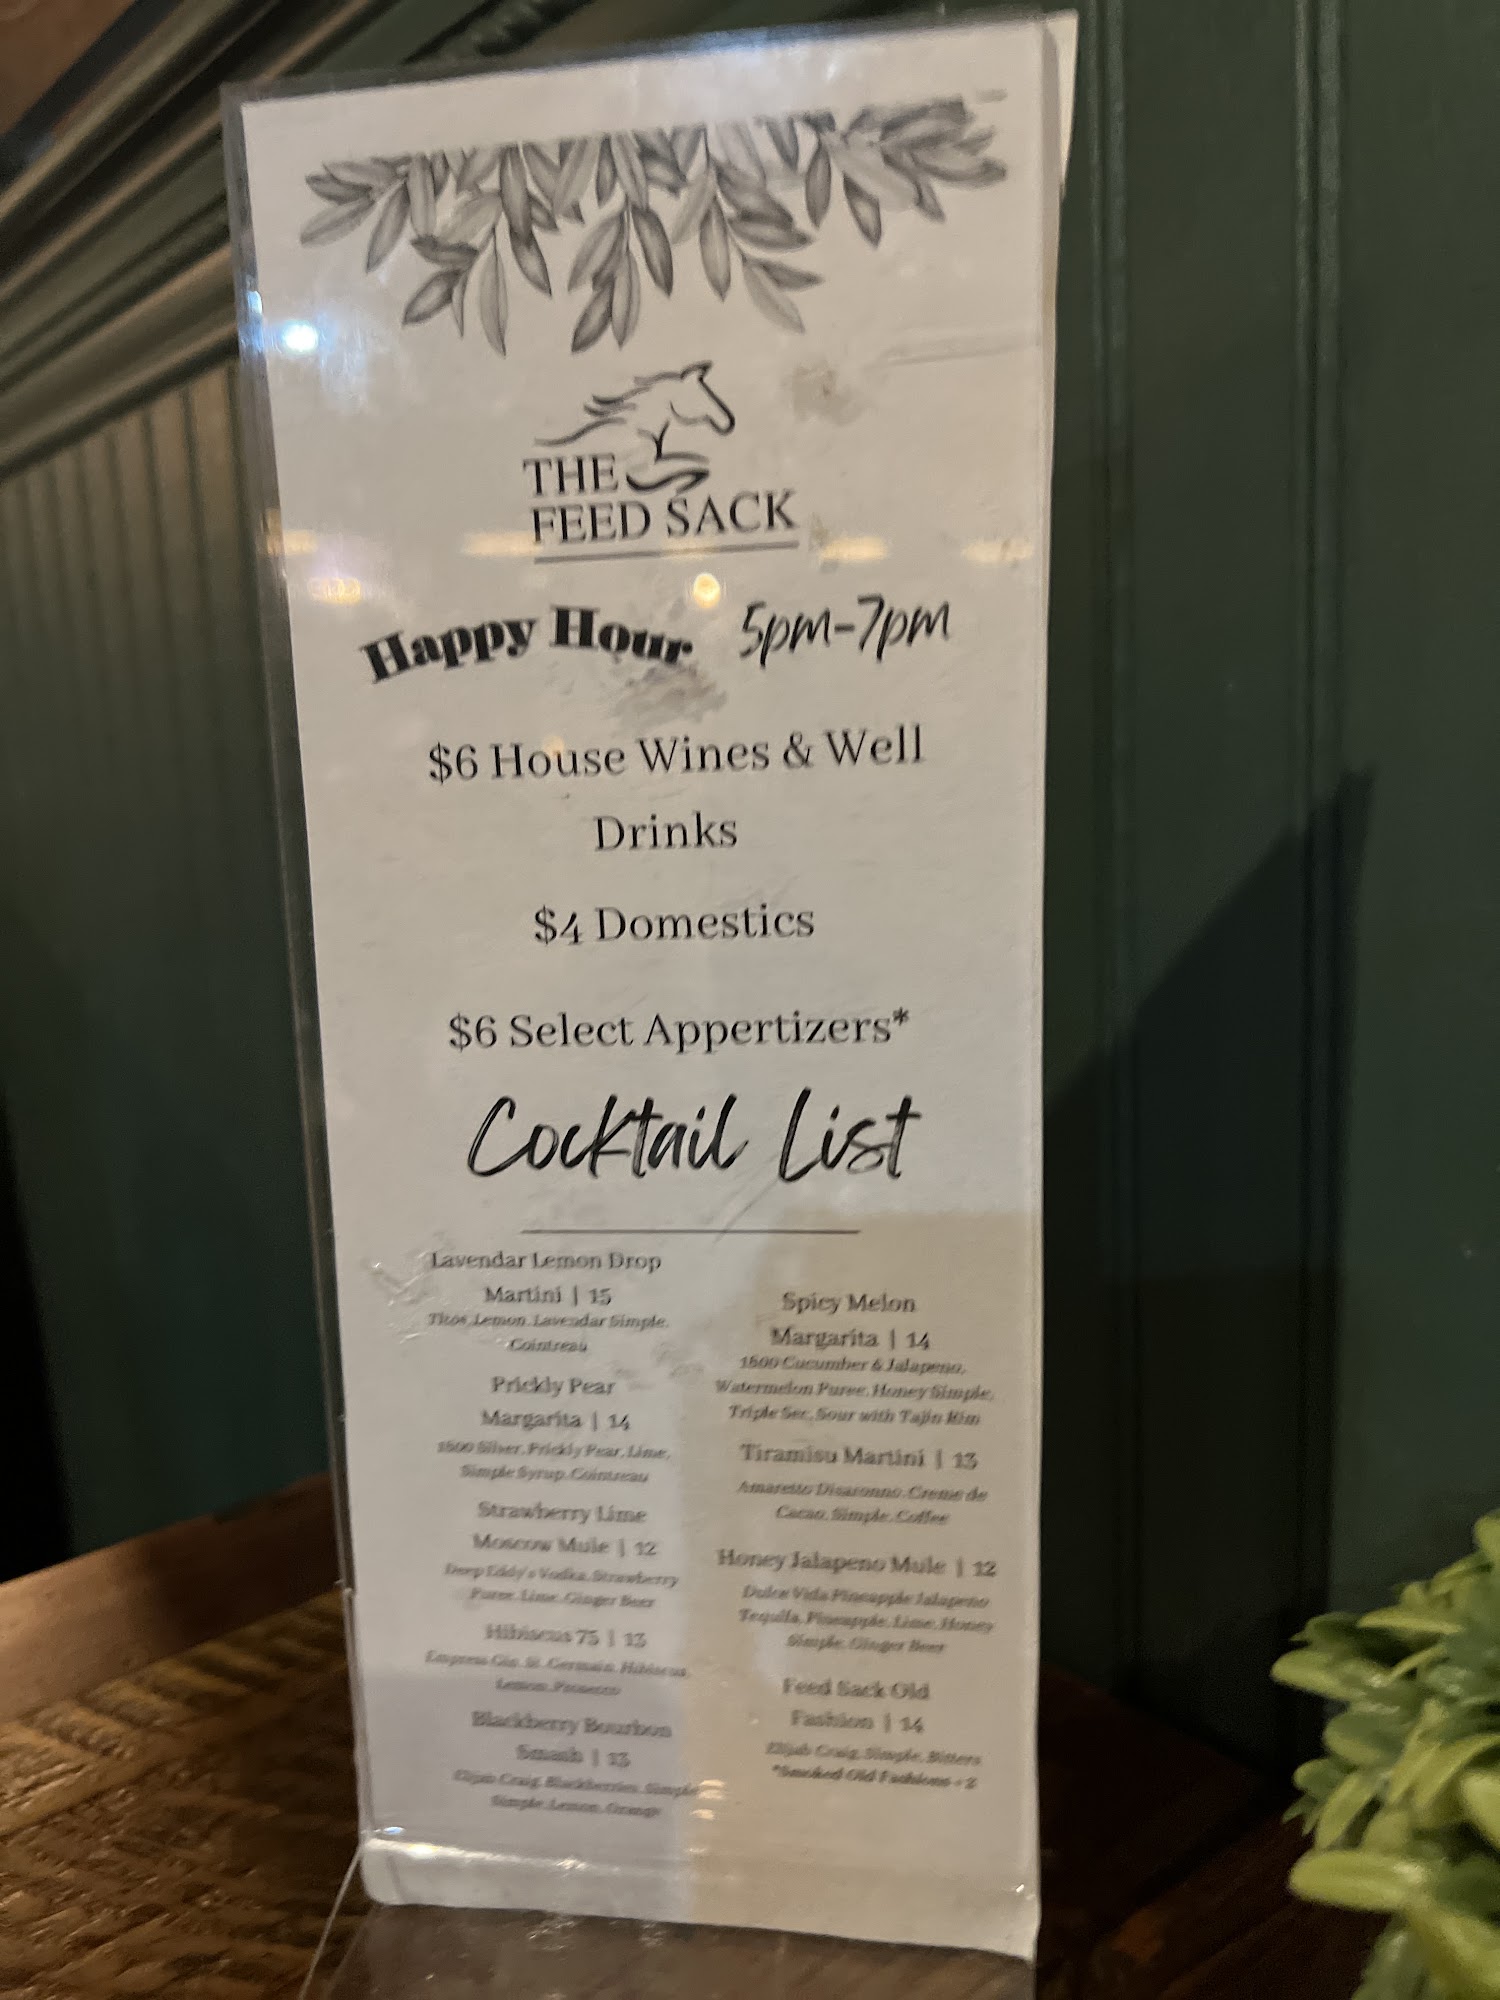 THE
FEED SACK
Happy Hour 5pm-7pm
$6 House Wines & Well
Drinks
$4 Domestics
$6 Select Appertizers*
Cocktail List
Lavendar Lemon Drop
Martini | 15
Titos, Lemon, Lavendar Simple,
Cointreau
Prickly Pear
Margarita | 14
1800 Silver, Prickly Pear, Lime,
Simple Syrup, Cointreau
Strawberry Lime
Moscow Mule | 12
Deep Eddy's Vodka, Strawberry
Puree, Lime, Ginger Beer
Hibiscus 75 | 13
Empress Gin, St. Germain, Hibiscus,
Lemon, Prosecco
Blackberry Bourbon
Smash | 13
Elijah Craig, Blackberries, Simple
Simple, Lemon, Orange
Spicy Melon
Margarita | 14
1800 Cucumber & Jalapeno,
Watermelon Puree, Honey Simple,
Triple Sec, Sour with Tajin Rim
Tiramisu Martini | 13
Amaretto Disaronno, Creme de
Cacao, Simple, Coffee
Honey Jalapeno Mule | 12
Dulce Vida Pineapple Jalapeno
Tequila, Pineapple, Lime, Honey
Simple, Ginger Beer
Feed Sack Old
Fashion | 14
Elijah Craig, Simple, Bitters
*Smoked Old Fashions +2